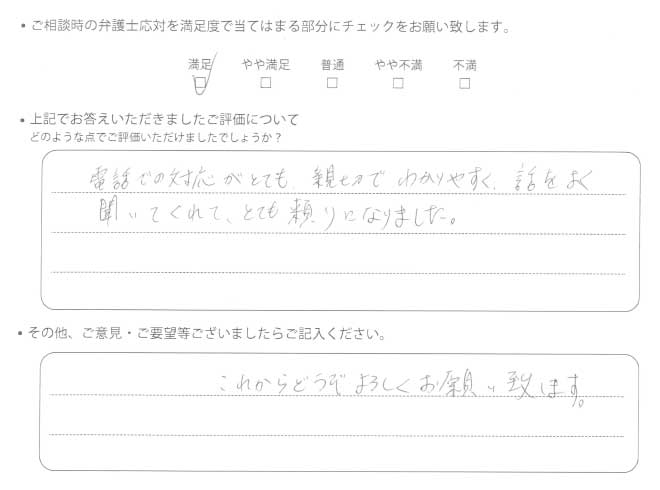 ・ご相談時の弁護士応対を満足度で当てはまる部分にチェックをお願い致します。
満足 やや満足 普通 やや不満 不満
・上記でお答えいただきましたご評価について
どのような点でご評価いただけましたでしょうか？
電話での対応がとても、親切でわかりやすく、話をよく
聞いてくれて、とても頼りになりました。
・その他、ご意見・ご要望等ございましたらご記入ください。
これからどうぞよろしくお願い致します。